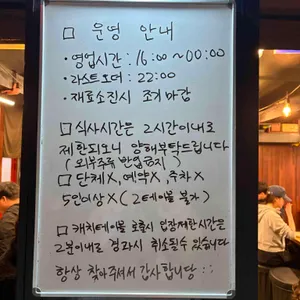 □ 운영 안내
· 영업시간 : 16:00 ~ 00:00
· 라스트오더 : 22:00
· 재료소진시 조기마감
□ 식사시간은 2시간이내로
제한되오니 양해부탁드립니다
( 외부주류 반입금지 )
□ 단체X, 예약X, 주차X
5인이상X ( 2테이블 불가 )
□ 캐치테이블 호출시 입장제한시간은
2분이내로 경과시 취소될수 있습니다
항상 찾아주셔서 감사합니다 : :